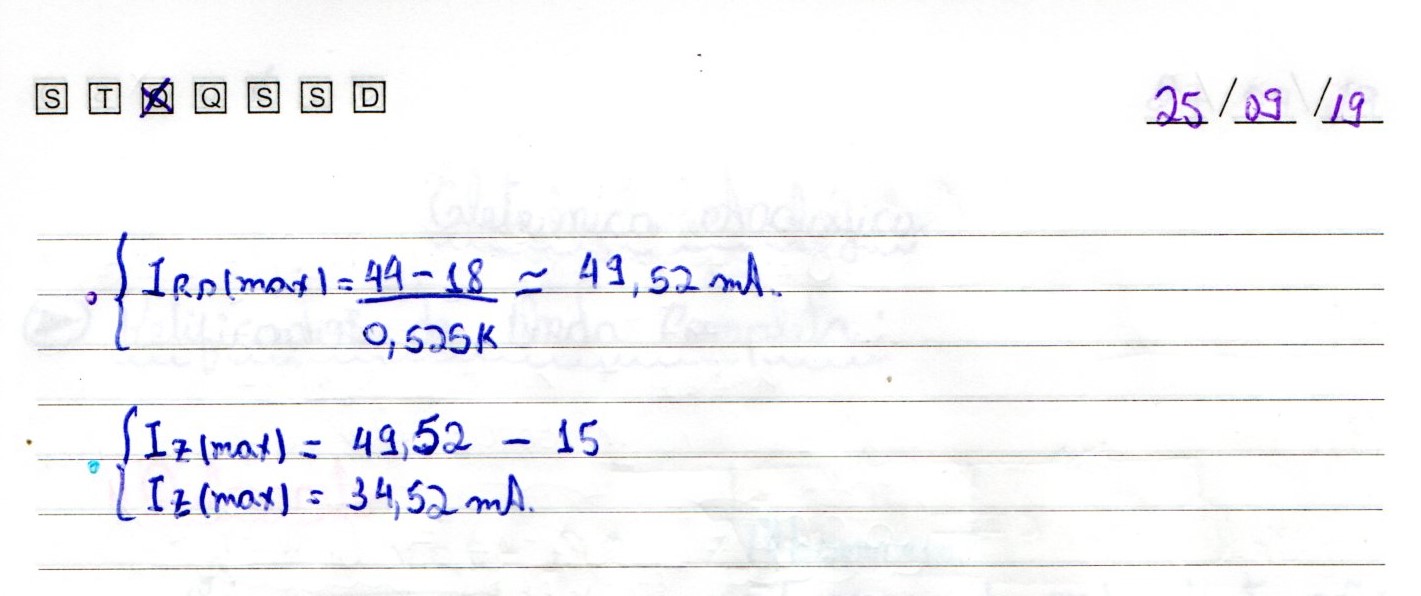 S T Q Q S S D 25/09/19
IRD(max) = 44 - 18 ≃ 49,52 mA.
0,525K
IZ(max) = 49,52 - 15
IZ(max) = 34,52 mA.